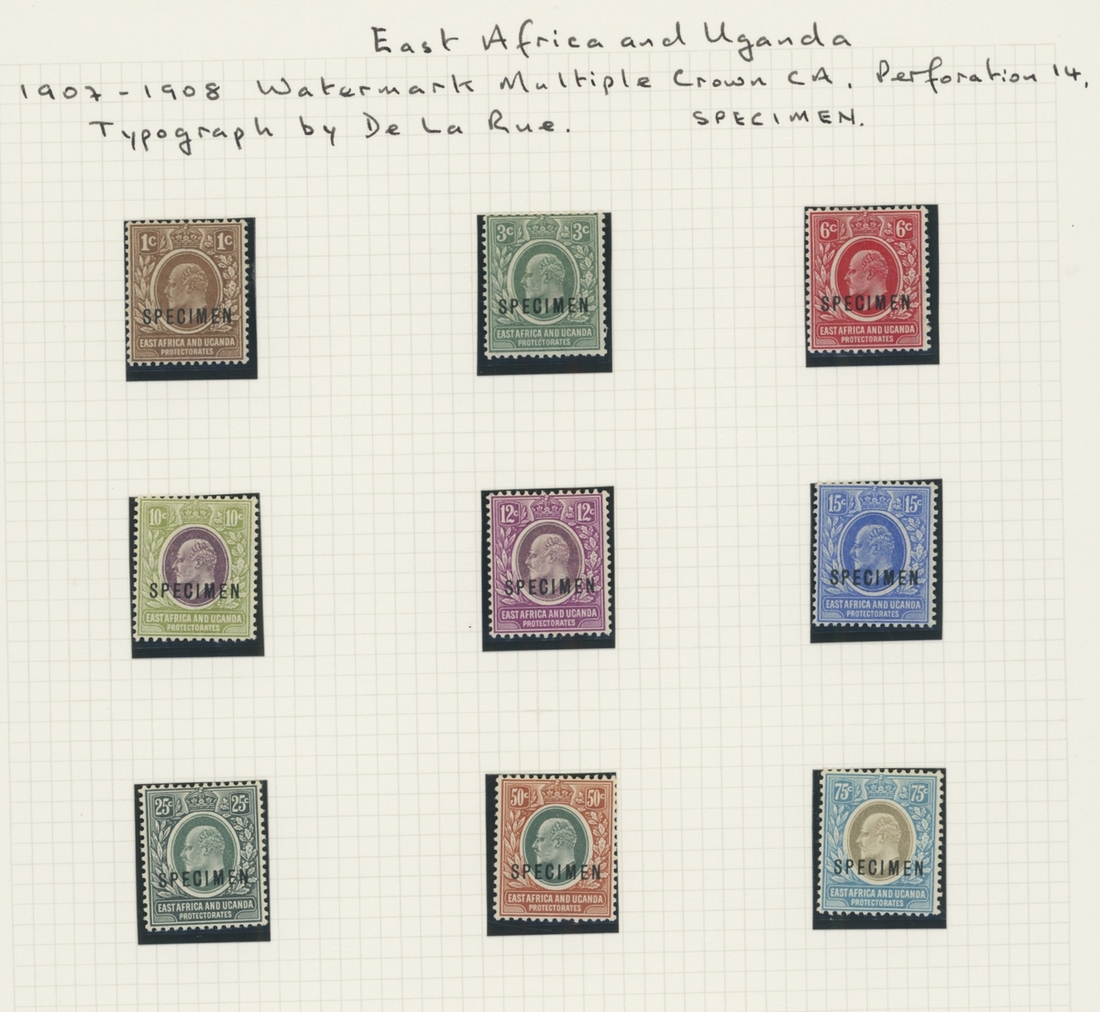 East Africa and Uganda
1907-1908 Watermark Multiple Crown CA. Perforation 14,
Typograph by De La Rue. SPECIMEN.
1c 1c
SPECIMEN
EAST AFRICA AND UGANDA
PROTECTORATES
3c 3c
SPECIMEN
EAST AFRICA AND UGANDA
PROTECTORATES
6c 6c
SPECIMEN
EAST AFRICA AND UGANDA
PROTECTORATES
10c 10c
SPECIMEN
EAST AFRICA AND UGANDA
PROTECTORATES
12c 12c
SPECIMEN
EAST AFRICA AND UGANDA
PROTECTORATES
15c 15c
SPECIMEN
EAST AFRICA AND UGANDA
PROTECTORATES
25c 25c
SPECIMEN
EAST AFRICA AND UGANDA
PROTECTORATES
50c 50c
SPECIMEN
EAST AFRICA AND UGANDA
PROTECTORATES
75c 75c
SPECIMEN
EAST AFRICA AND UGANDA
PROTECTORATES